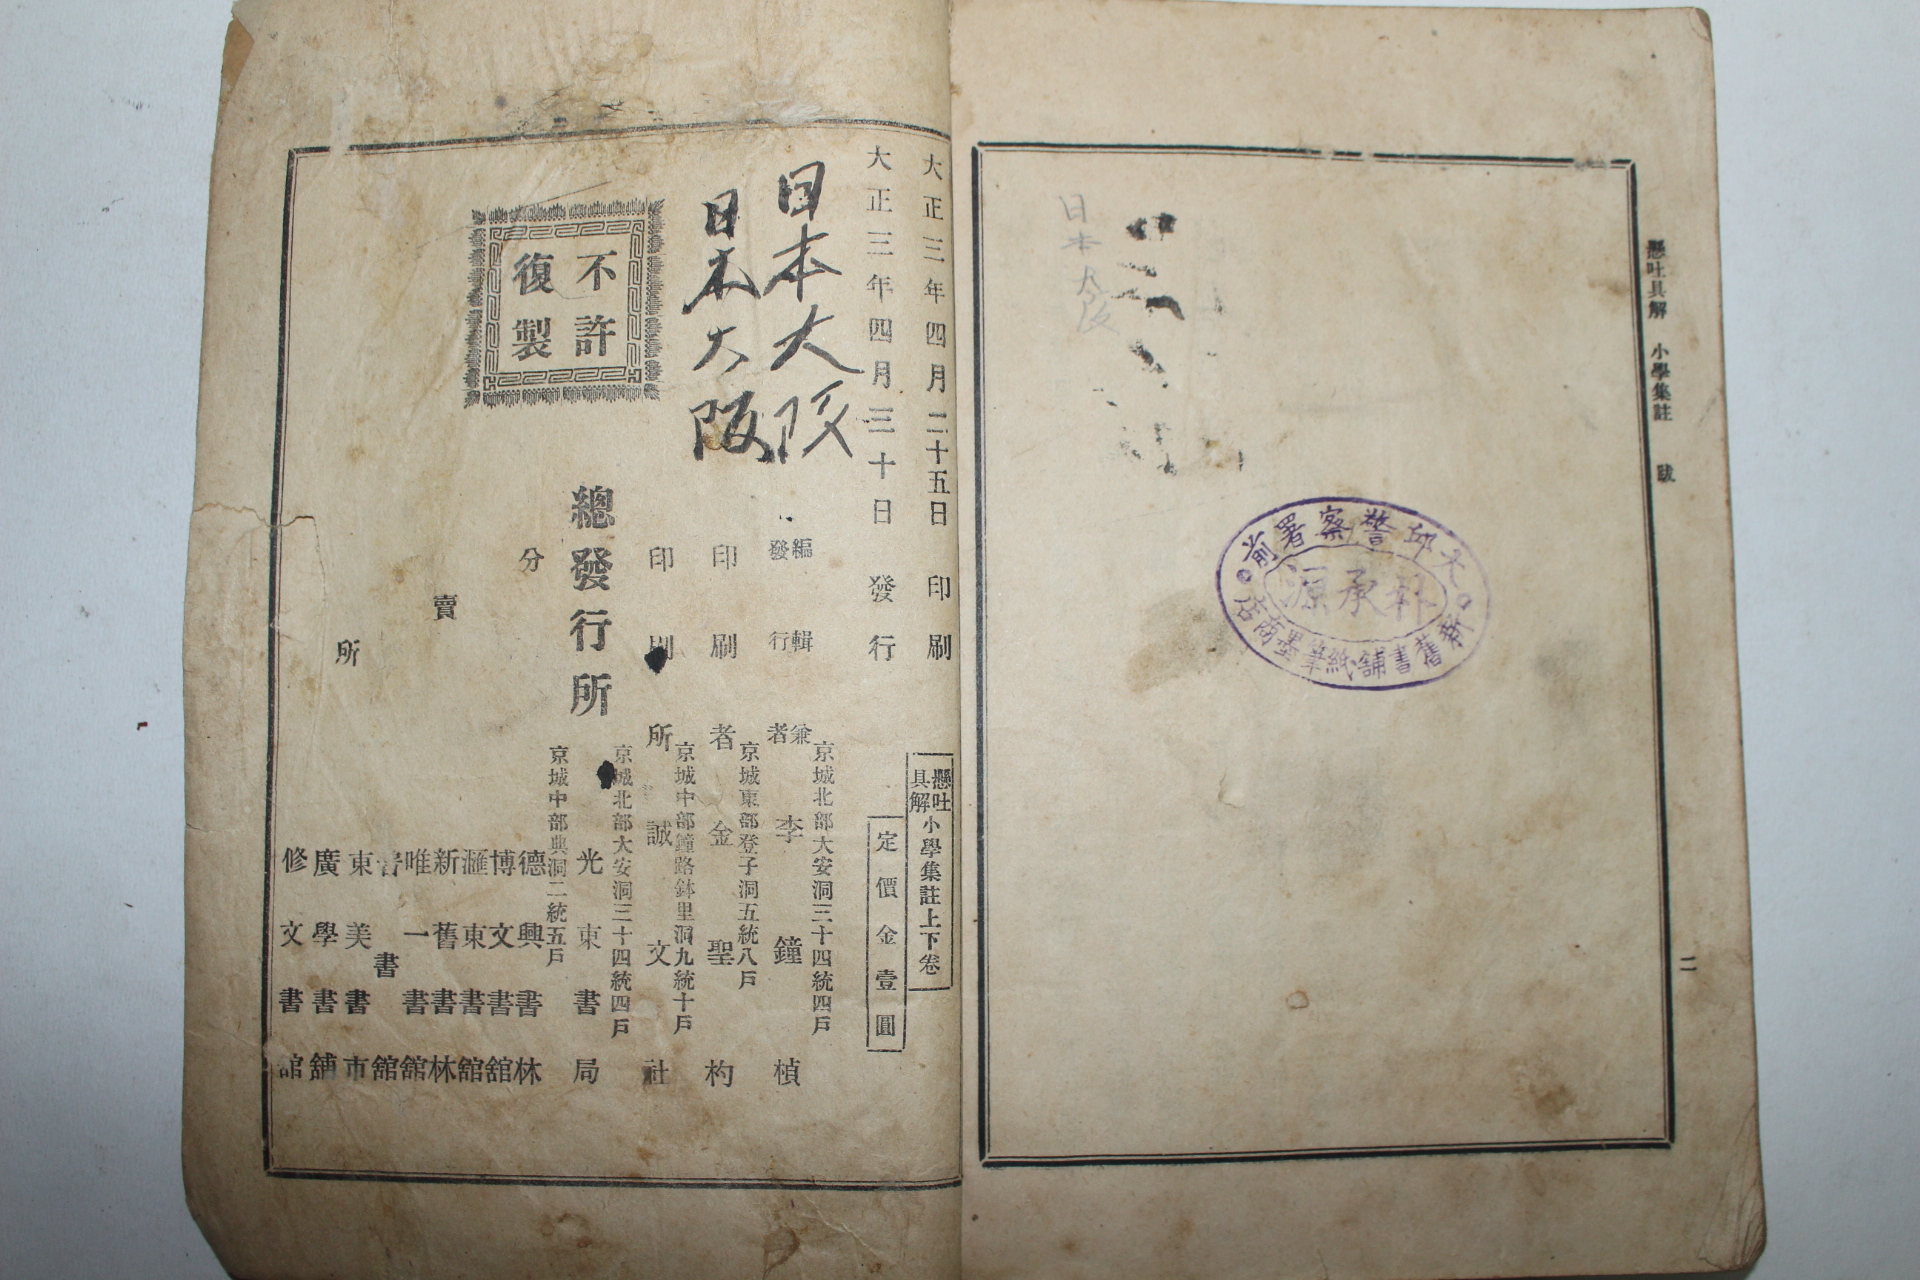 懸吐具解 小學集註 跋
二
大邱警察署前
朴承源
新舊書舖紙筆墨商店
日本大阪
大正三年四月二十五日印刷
大正三年四月三十日發行
懸吐具解小學集註上下卷
定價金壹圓
日本大阪
日本大阪
京城北部大安洞三十四統四戶
編輯兼發行者 李鐘楨
京城東部登子洞五統八戶
印刷者 金聖杓
京城中部鐘路鉢里洞九統十戶
印刷所 誠文社
京城北部大安洞三十四統四戶
總發行所 光東書局
不許復製
京城中部典洞二統五戶
分賣所
德興書林
博文書舘
滙東書舘
新舊書林
唯一書舘
普書舘
東美書市
廣學書舖
修文書舘